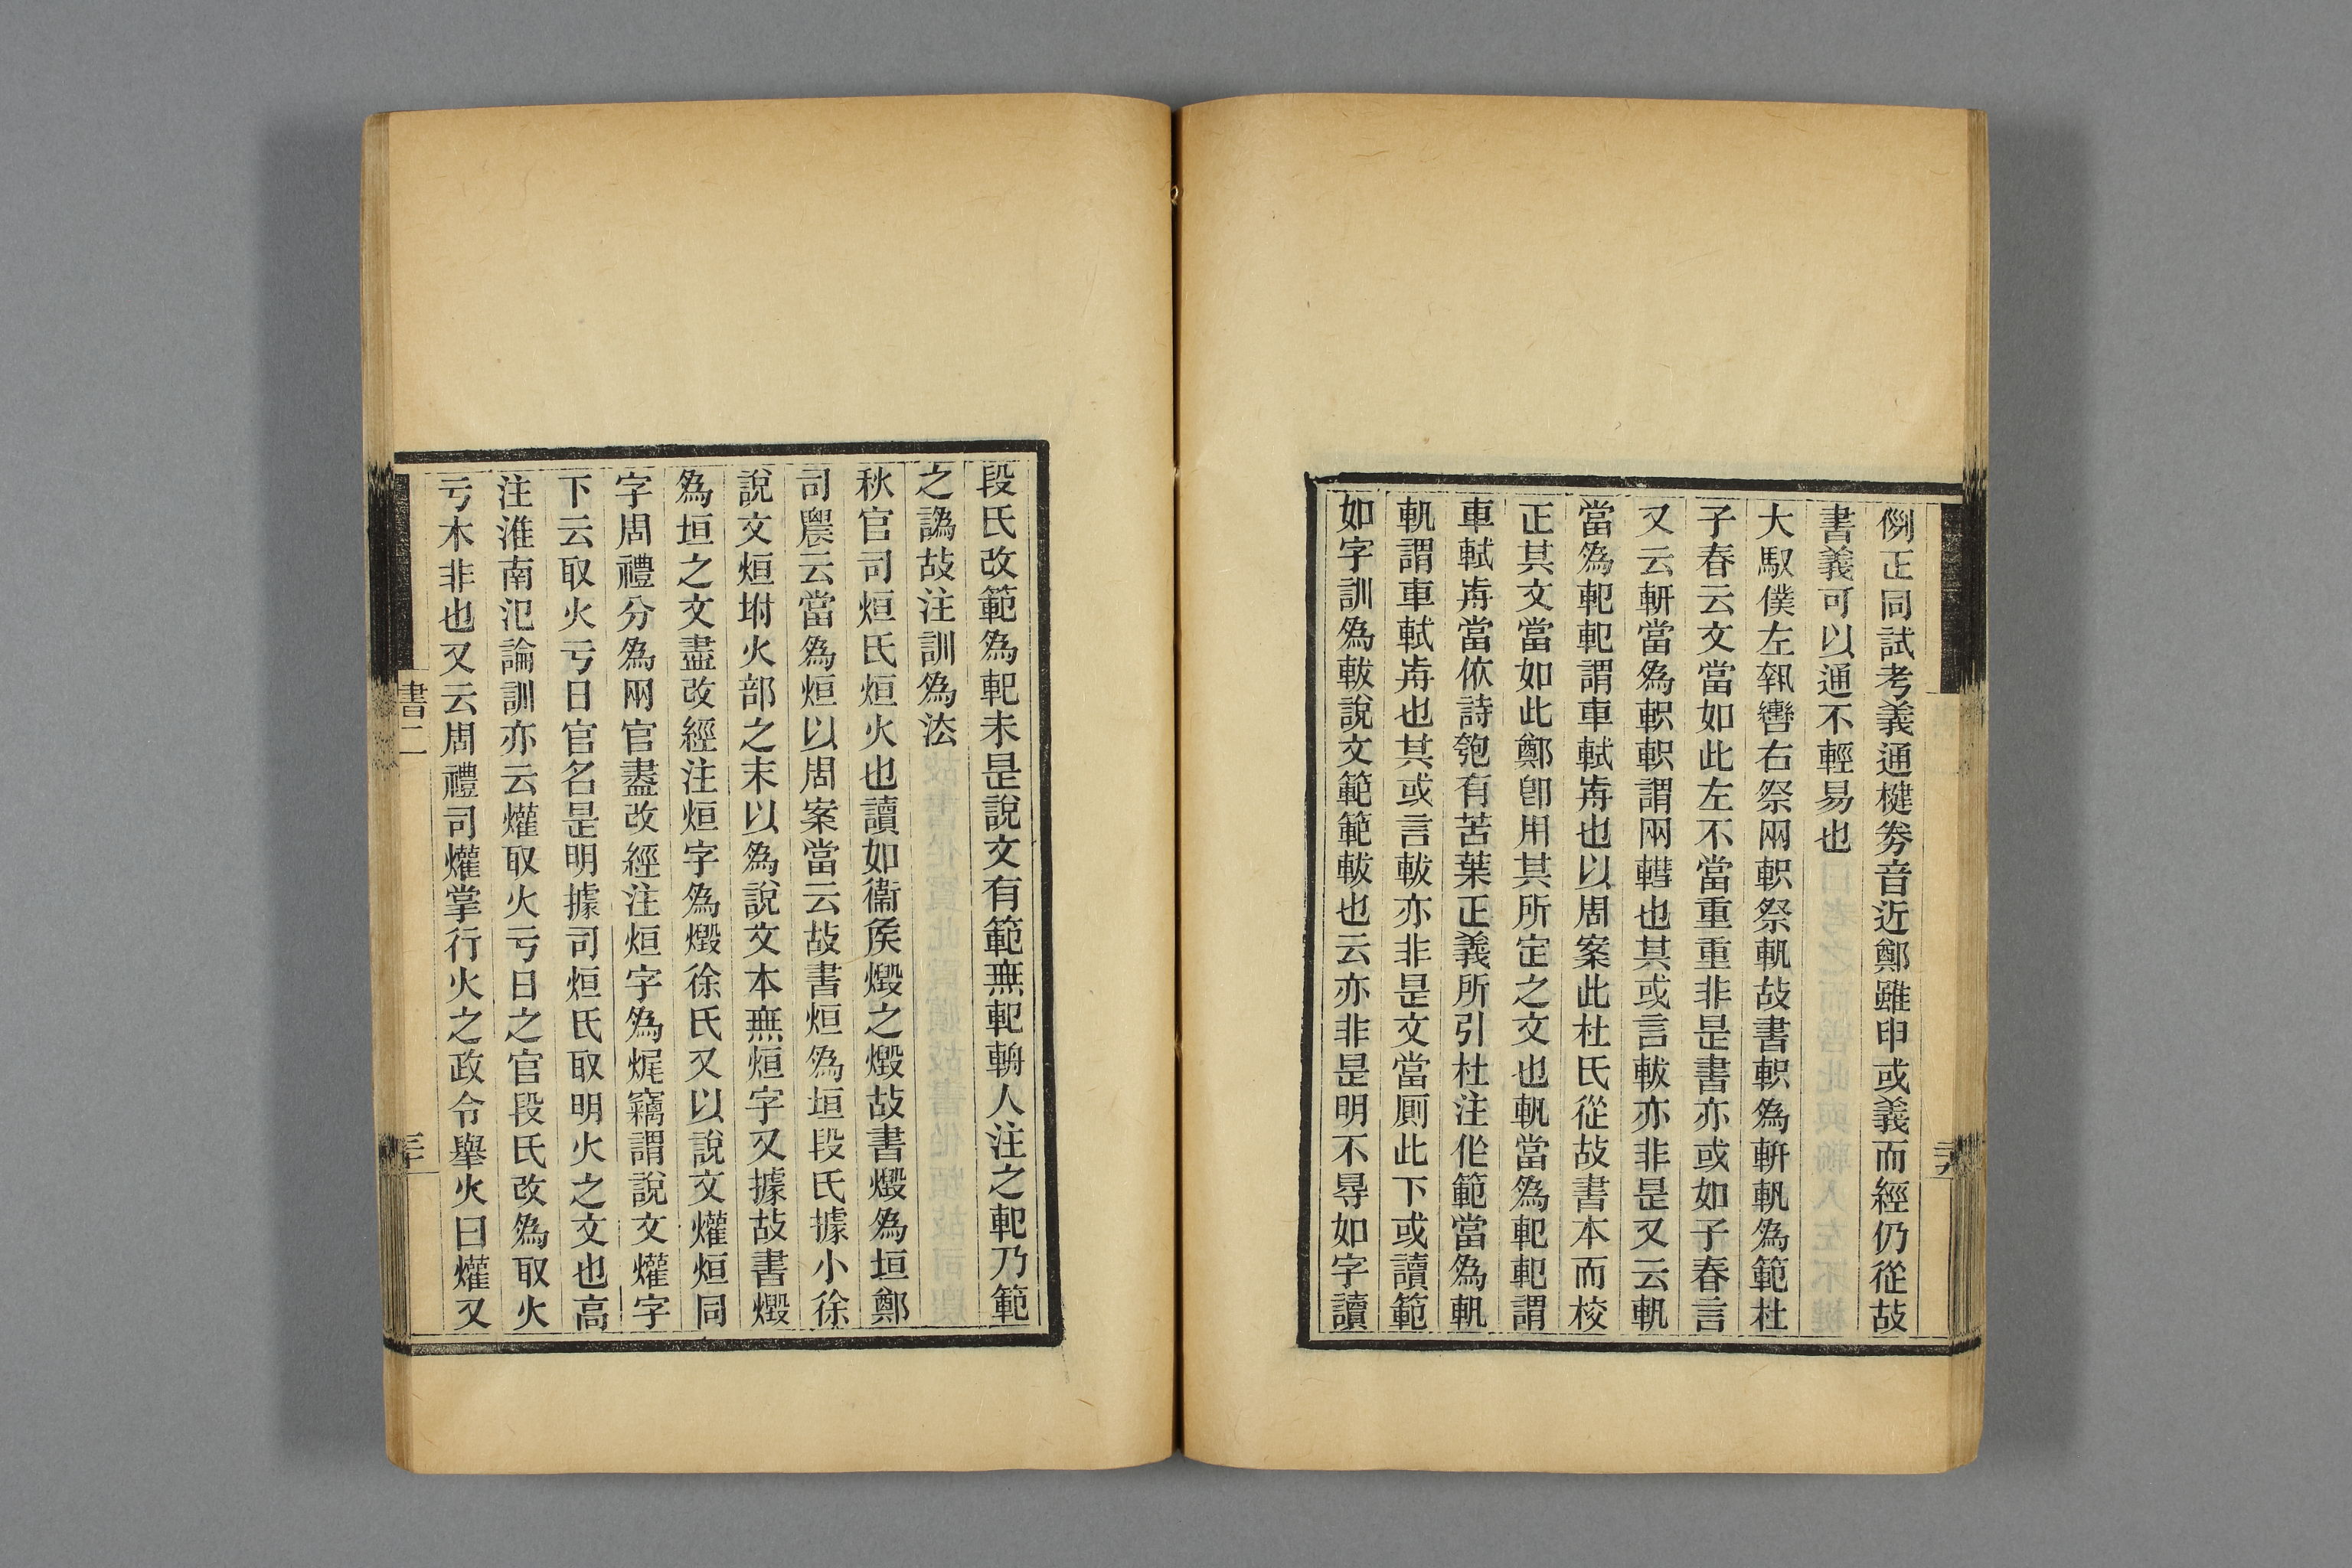 例正同試考義通楗劵音近鄭雖申或義而經仍從故
書義可以通不輕易也
大馭僕左執轡右祭兩軹祭軓故書軹為軿軓為範杜
子春云文當如此左不當重重非是書亦或如子春言
又云軿當為軹軹謂兩轊也其或言軷亦非是又云軓
當為軋軋謂車軾歬也以周案此杜氏從故書本而校
正其文當如此鄭卽用其所定之文也軓當為軋軋謂
車軾歬當依詩匏有苦葉正義所引杜注作範當為軓
軓謂車軾歬也其或言軷亦非是文當厠此下或讀範
如字訓為軷說文範範軷也云亦非是明不㝵如字讀
段氏改範為軋未是說文有範無軋輈人注之軋乃範
之譌故注訓為法
秋官司烜氏烜火也讀如衞矦燬之燬故書燬為垣鄭
司農云當為烜以周案當云故書烜為垣段氏據小徐
說文烜坿火部之末以為說文本無烜字又據故書燬
為垣之文盡改經注烜字為燬徐氏又以說文爟烜同
字周禮分為兩官盡改經注烜字為烬竊謂說文爟字
下云取火亏日官名是明據司烜氏取明火之文也高
注淮南氾論訓亦云爟取火亏日之官段氏改為取火
亏木非也又云周禮司爟掌行火之政令舉火曰爟又
書二
三十